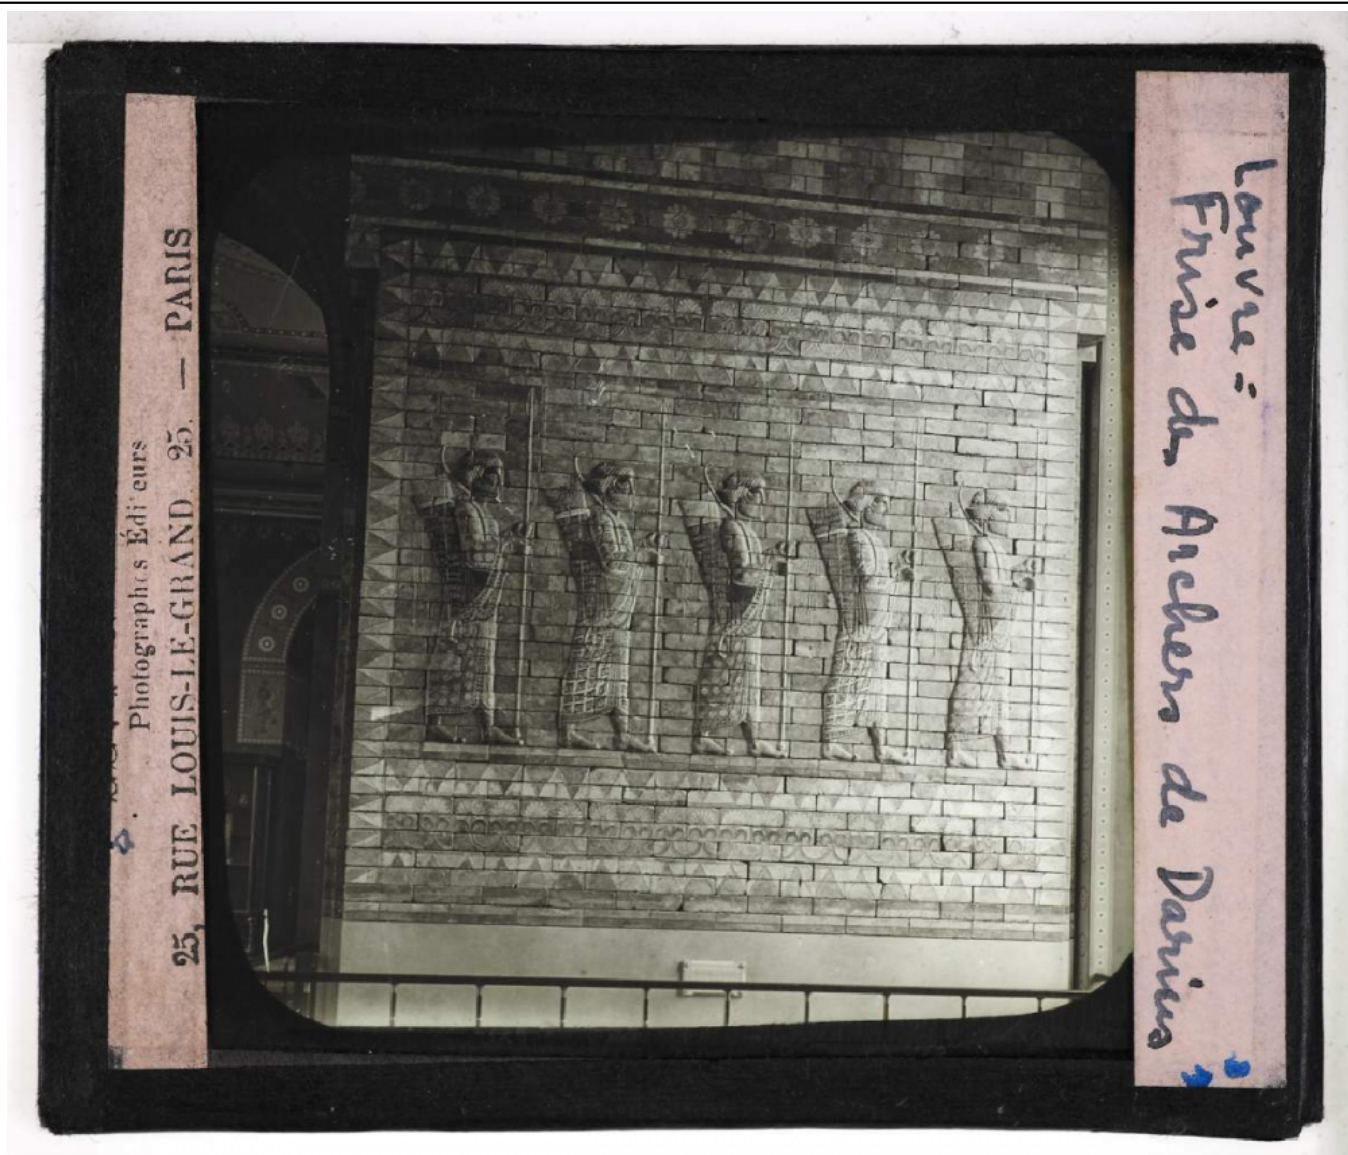 Photographes Édi eurs
25, RUE LOUIS-LE-GRAND 25. — PARIS
Louvre =
Frise des Archers de Darius